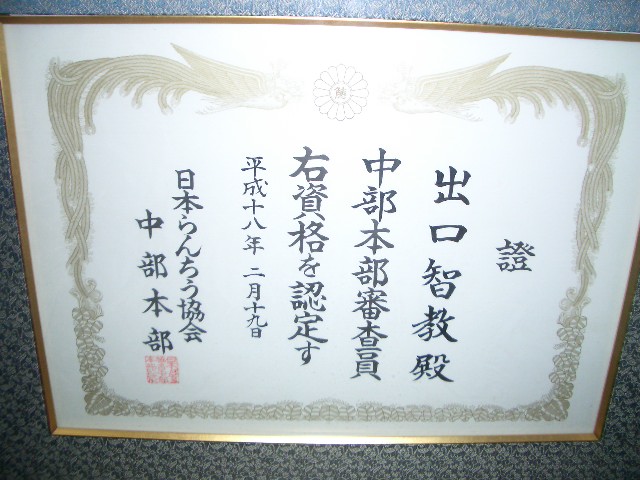 證
出口智教殿
中部本部審査員
右資格を認定す
平成十八年二月十九日
日本らんちう協会
中部本部